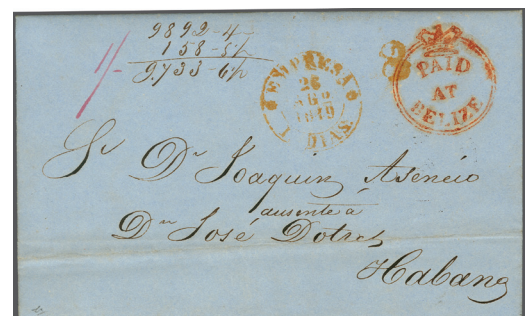 9892-4
158-5½
9.733-6½
1/-
EMPRESA
26
AGO
1849
DIAS
8
PAID
AT
BELIZE
Sr Dn Joaquin Asencio
ausente á
Dn José
Habana